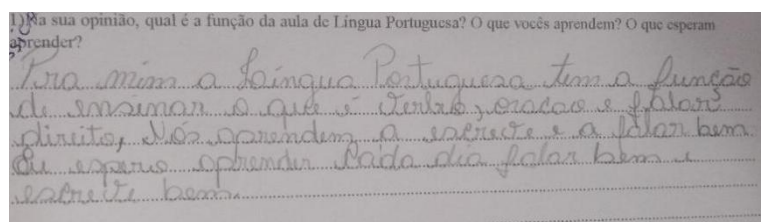 1) Na sua opinião, qual é a função da aula de Língua Portuguesa? O que vocês aprendem? O que esperam
aprender?
Pra mim a Língua Portuguesa tem a função
de ensinar o que é Verbo, oracao e falar
direito, Nós aprendem a escreve e a falar bem.
Eu espero aprender Cada dia falar bem e
escreve bem.